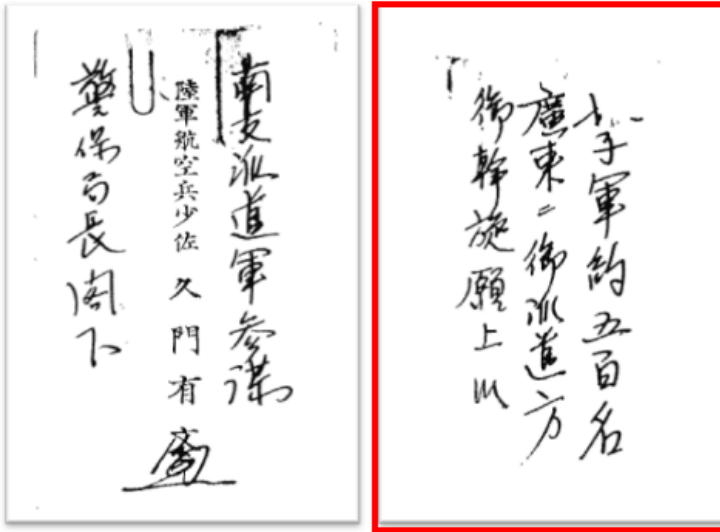 南支派遣軍参謀
陸軍航空兵少佐 久門有文
警保局長閣下
娘子軍約五百名
廣東ニ御派遣方
御幹旋願上候